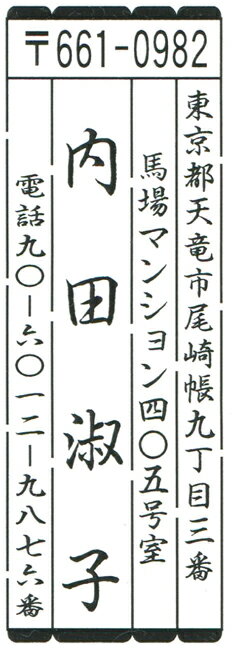 〒661-0982
東京都天竜市尾崎帳九丁目三番
馬場マンション四〇五号室
内田淑子
電話九〇－六〇一二－九八七六番